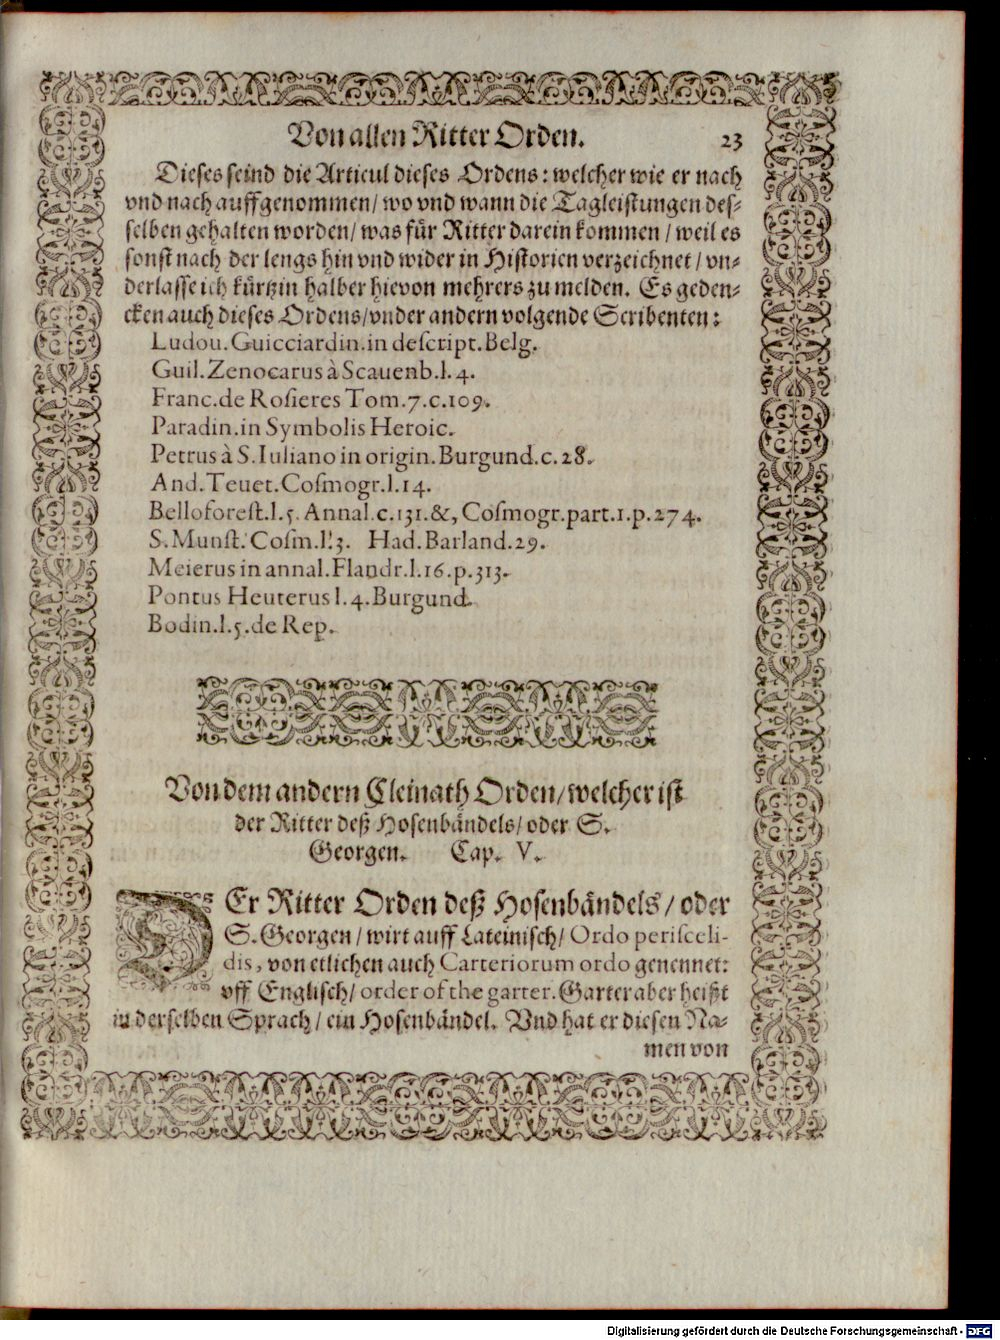 Von allen Ritter Orden. 23
Dieses seind die Articul dieses Ordens: welcher wie er nach
vnd nach auffgenommen/ wo vnd wann die Tagleistungen des-
selben gehalten worden/ was für Ritter darein kommen/ weil es
sonst nach der lengs hin vnd wider in Historien verzeichnet/ vn-
derlasse ich kürtzin halber hievon mehrers zu melden. Es geden-
cken auch dieses Ordens/ vnder andern volgende Scribenten:
Ludou. Guicciardin. in descript. Belg.
Guil. Zenocarus à Scauenb. l. 4.
Franc. de Rosieres Tom. 7. c. 109.
Paradin. in Symbolis Heroic.
Petrus à S. Iuliano in origin. Burgund. c. 28.
And. Teuet. Cosmogr. l. 14.
Belloforest. l. 5. Annal. c. 131. &, Cosmogr. part. 1. p. 274.
S. Munst. Cosm. l. 3. Had. Barland. 29.
Meierus in annal. Flandr. l. 16. p. 313.
Pontus Heuterus l. 4. Burgund.
Bodin. l. 5. de Rep.
Von dem andern Cleinath Orden/ welcher ist
der Ritter deß Hosenbändels/ oder S.
Georgen. Cap. V.
DEr Ritter Orden deß Hosenbändels/ oder
S. Georgen/ wirt auff Lateinisch/ Ordo perisceli-
dis, von etlichen auch Carteriorum ordo genennet:
vff Englisch/ order of the garter. Garter aber heißt
in derselben Sprach/ ein Hosenbändel. Vnd hat er diesen Na-
men von
Digitalisierung gefördert durch die Deutsche Forschungsgemeinschaft - DFG